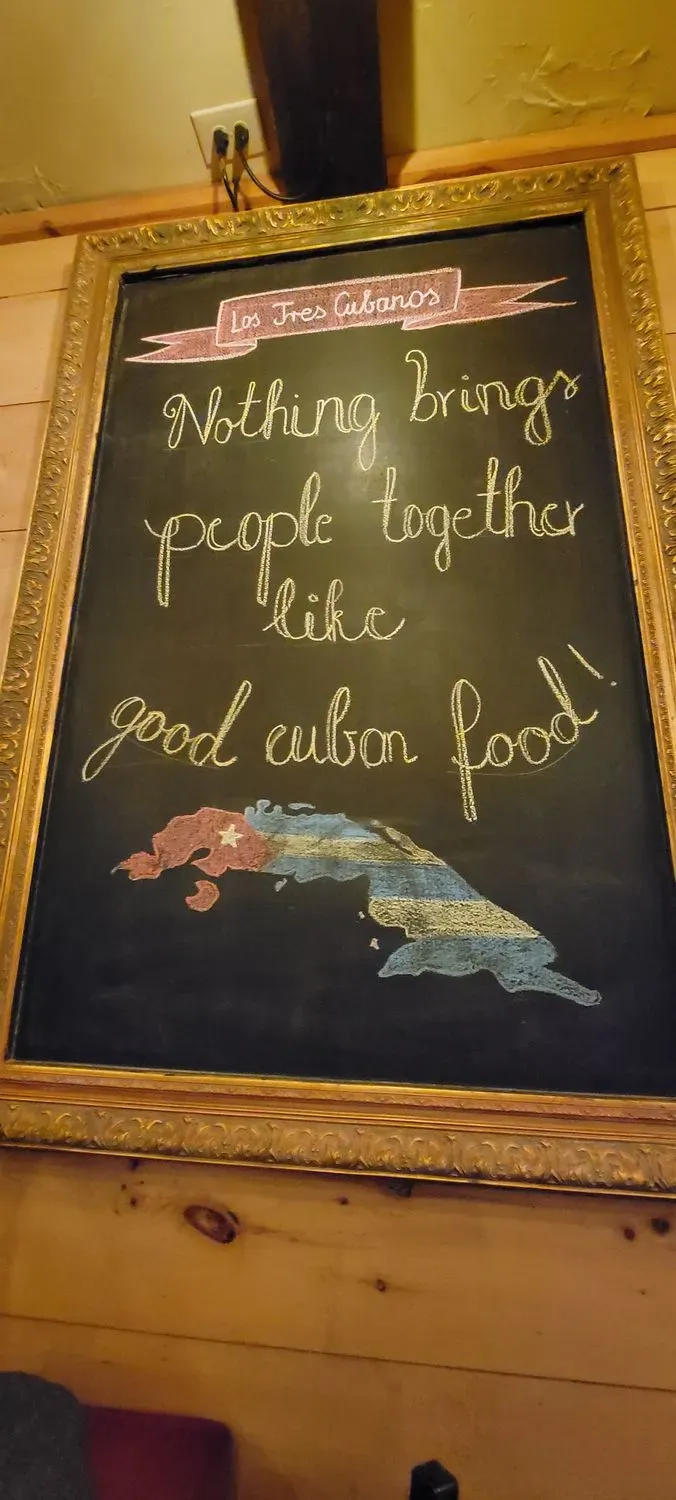 Los Tres Cubanos
Nothing brings
people together
like
good cuban food!